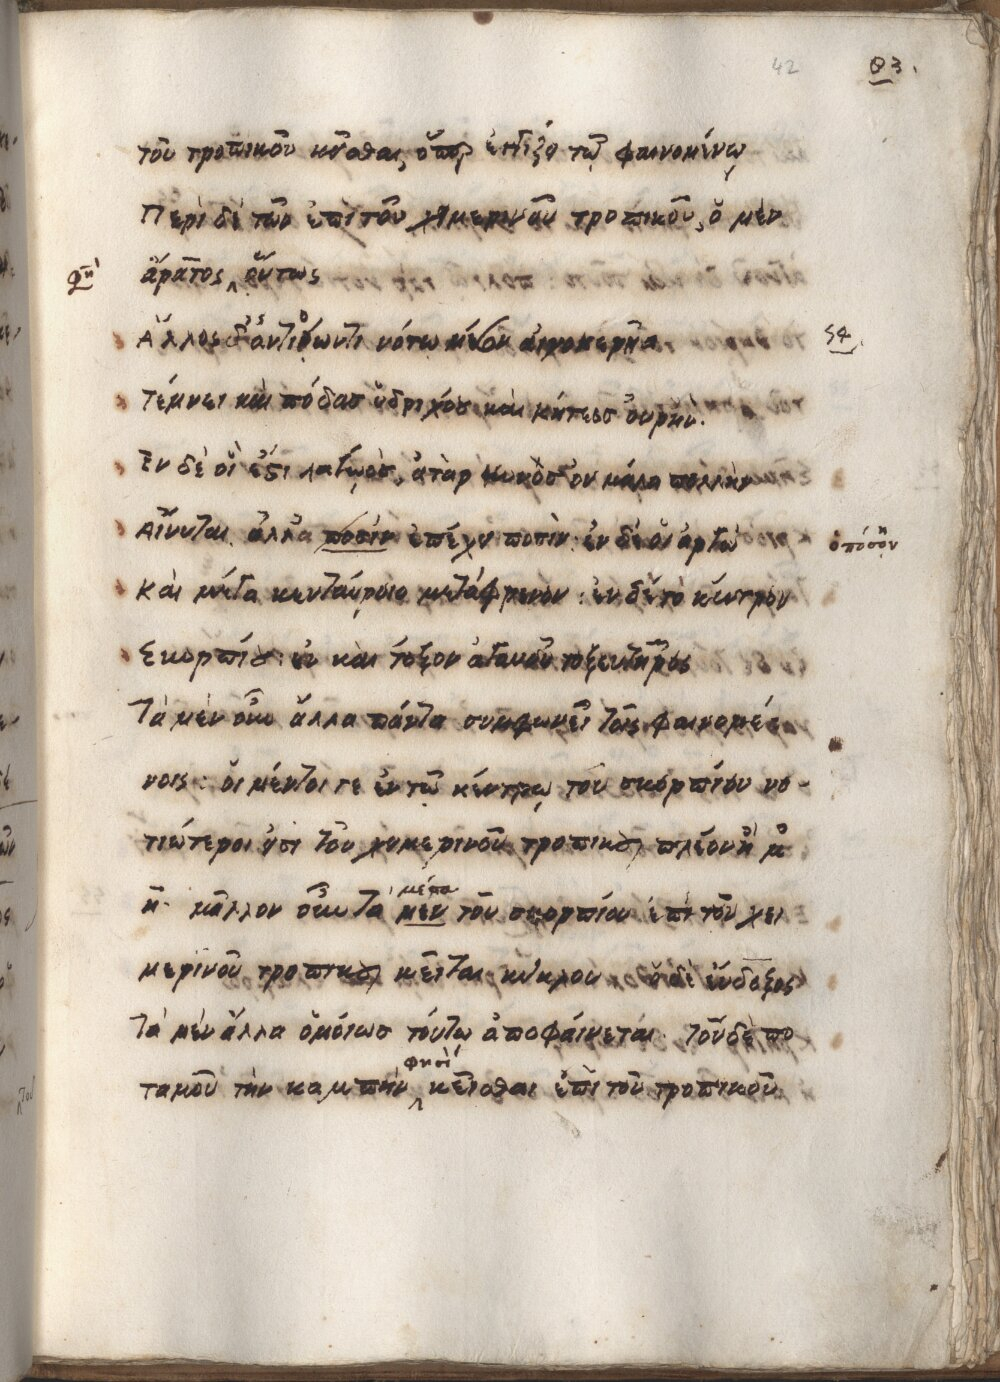 42 83.
τοῦ τροπικοῦ κεῖσθαι, ὅπερ ἐστὶ τῷ φαινομένῳ
Περὶ δὲ τῶν ἐπὶ τοῦ χειμερινοῦ τροπικοῦ, ὁ μὲν
ἄρατος οὕτως
Ἄλλος δ' ἀντιόωντι νότω μέσον αἰγοκερῆα
54
Τέμνει καὶ πόδασ ὑδριχόου καὶ κήτεοσ οὐρήν.
Ἐν δέ οἵ ἐστι λαγωός, ἀτὰρ κυνὸσ οὐ μάλα πολλὴν
Αἴνυται ἀλλ' ποσὶν ἐπέχει ποσίν: ἐν δέ οἱ ἀργὼ
ὁπόσην
Καὶ μέγα κενταύροιο μετάφρενον: ἐν δὲ τὸ κέντρον
Σκορπίου: ἐν καὶ τόξον ἀγαυοῦ τοξευτῆρος
Τὰ μὲν οὖν ἄλλα πάντα συμφωνεῖ τοῖς φαινομέ
νοις: οἱ μέντοι γε ἐν τῷ κέντρῳ τοῦ σκορπίου νο-
τιώτεροι εἰσὶ τοῦ χειμερινοῦ τροπικοῦ πλέον ἢ μ̊
η̄· μᾶλλον οὖν τὰ μὲν μέσα τοῦ σκορπίου ἐπὶ τοῦ χει
μερινοῦ τροπικοῦ κεῖται κύκλου ὁ δὲ εὔδοξος
τὰ μὲν ἄλλα ὁμοίωσ τούτω ἀποφαίνεται. τοῦ δὲ πο
ταμοῦ τὴν καμπὴν φησὶ κεῖσθαι ἐπὶ τοῦ τροπικοῦ